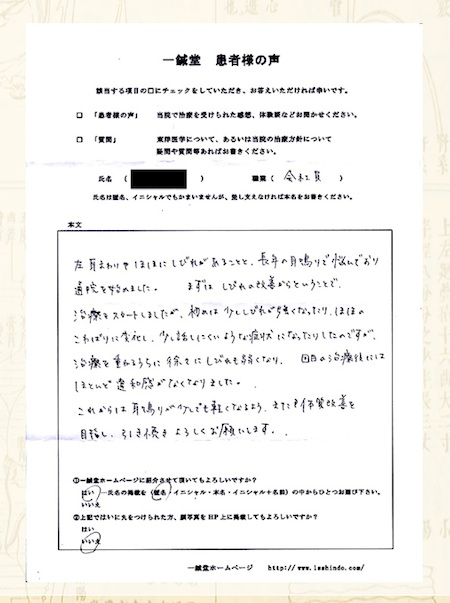 一鍼堂 患者様の声
該当する項目の口にチェックをしていただき、お答えいただければ幸いです。
□ 「患者様の声」 当院で治療を受けられた感想、体験談などお聞かせください。
□ 「質問」 東洋医学について、あるいは当院の治療方針について
疑問や質問等あればお書きください。
氏名 ( ) 職業 ( 会社員 )
氏名は匿名、イニシャルでもかまいませんが、差し支えなければ本名をお書きください。
本文
左耳まわりやほほにしびれがあることと、長年の耳鳴りで悩んでおり
通院を始めました。 まずはしびれの改善からということで、
治療をスタートしましたが、初めは少ししびれが強くなったり、ほほの
こわばりに変化し、少し話しにくいような症状になったりしたのですが、
治療を重ねるうちに徐々にしびれも弱くなり、 回目の治療後には
ほとんど違和感がなくなりました。
これからは耳鳴りが少しでも軽くなるよう、また体質改善を
目指し、引き続きよろしくお願いします。
①一鍼堂ホームページに紹介させて頂いてもよろしいですか?
はい ―氏名の掲載を (匿名・イニシャル・本名・イニシャル+名前) の中からひとつお選び下さい。
いいえ
②上記ではいに丸をつけられた方、顔写真をHP上に掲載してもよろしいですか?
はい
いいえ
一鍼堂ホームページ http://www.isshindo.com/